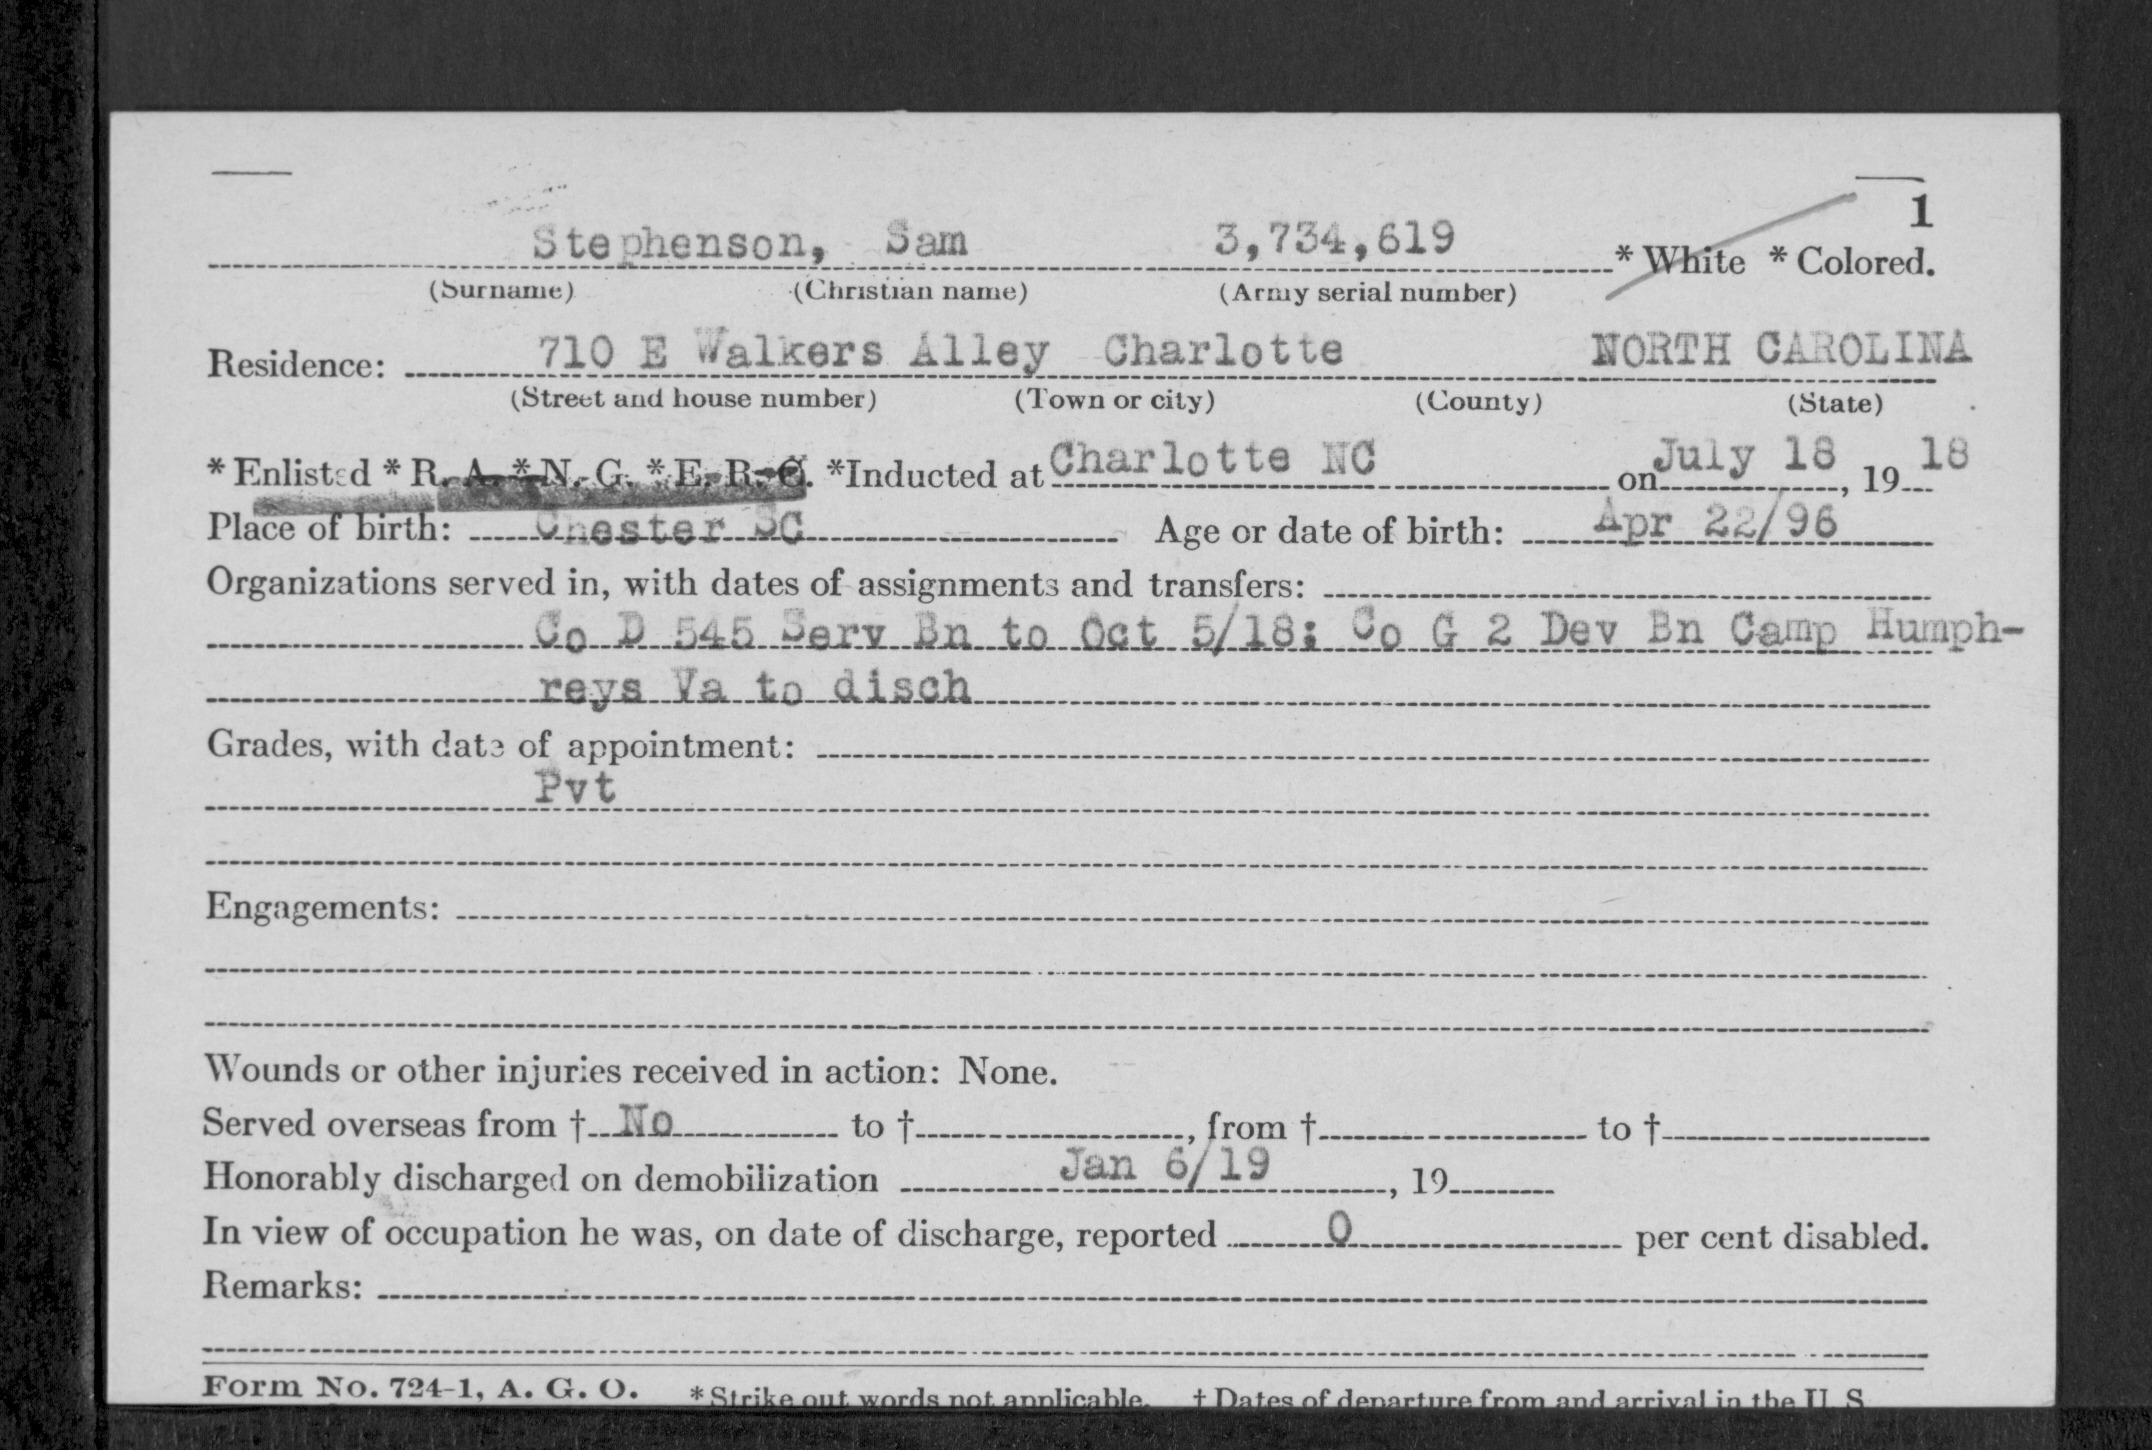 1
Stephenson, Sam 3,734,619 * White * Colored.
(Surname) (Christian name) (Army serial number)
Residence: 710 E Walkers Alley Charlotte NORTH CAROLINA
(Street and house number) (Town or city) (County) (State)
* Enlisted * R. A. * N. G. * E. R. C. *Inducted at Charlotte NC on July 18, 19 18
Place of birth: Chester SC Age or date of birth: Apr 22/96
Organizations served in, with dates of assignments and transfers:
Co D 545 Serv Bn to Oct 5/18; Co G 2 Dev Bn Camp Humph-
reys Va to disch
Grades, with date of appointment:
Pvt
Engagements:
Wounds or other injuries received in action: None.
Served overseas from † No to †, from † to †
Honorably discharged on demobilization Jan 6/19, 19
In view of occupation he was, on date of discharge, reported 0 per cent disabled.
Remarks:
Form No. 724-1, A. G. O. * Strike out words not applicable. † Dates of departure from and arrival in the U S